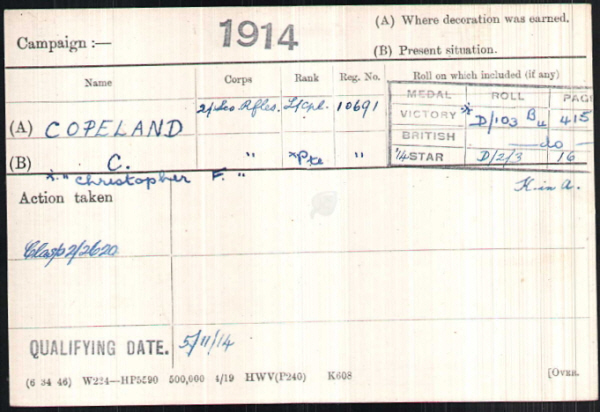 Campaign :— 1914 (A) Where decoration was earned.
(B) Present situation.
Name Corps Rank Reg. No. Roll on which included (if any)
MEDAL ROLL PAGE
(A) COPELAND 2/Sco Rfles. L/Cpl. 10691 VICTORY * D/103 B4 415
BRITISH —do—
(B) C. " *Pte " '14 STAR D/2/3 16
*." Christopher F. " K in A.
Action taken
Clasp 2/2620
QUALIFYING DATE. 5/11/14
(6 34 46) W224—HP5590 500,000 4/19 HWV(P240) K608 [OVER.